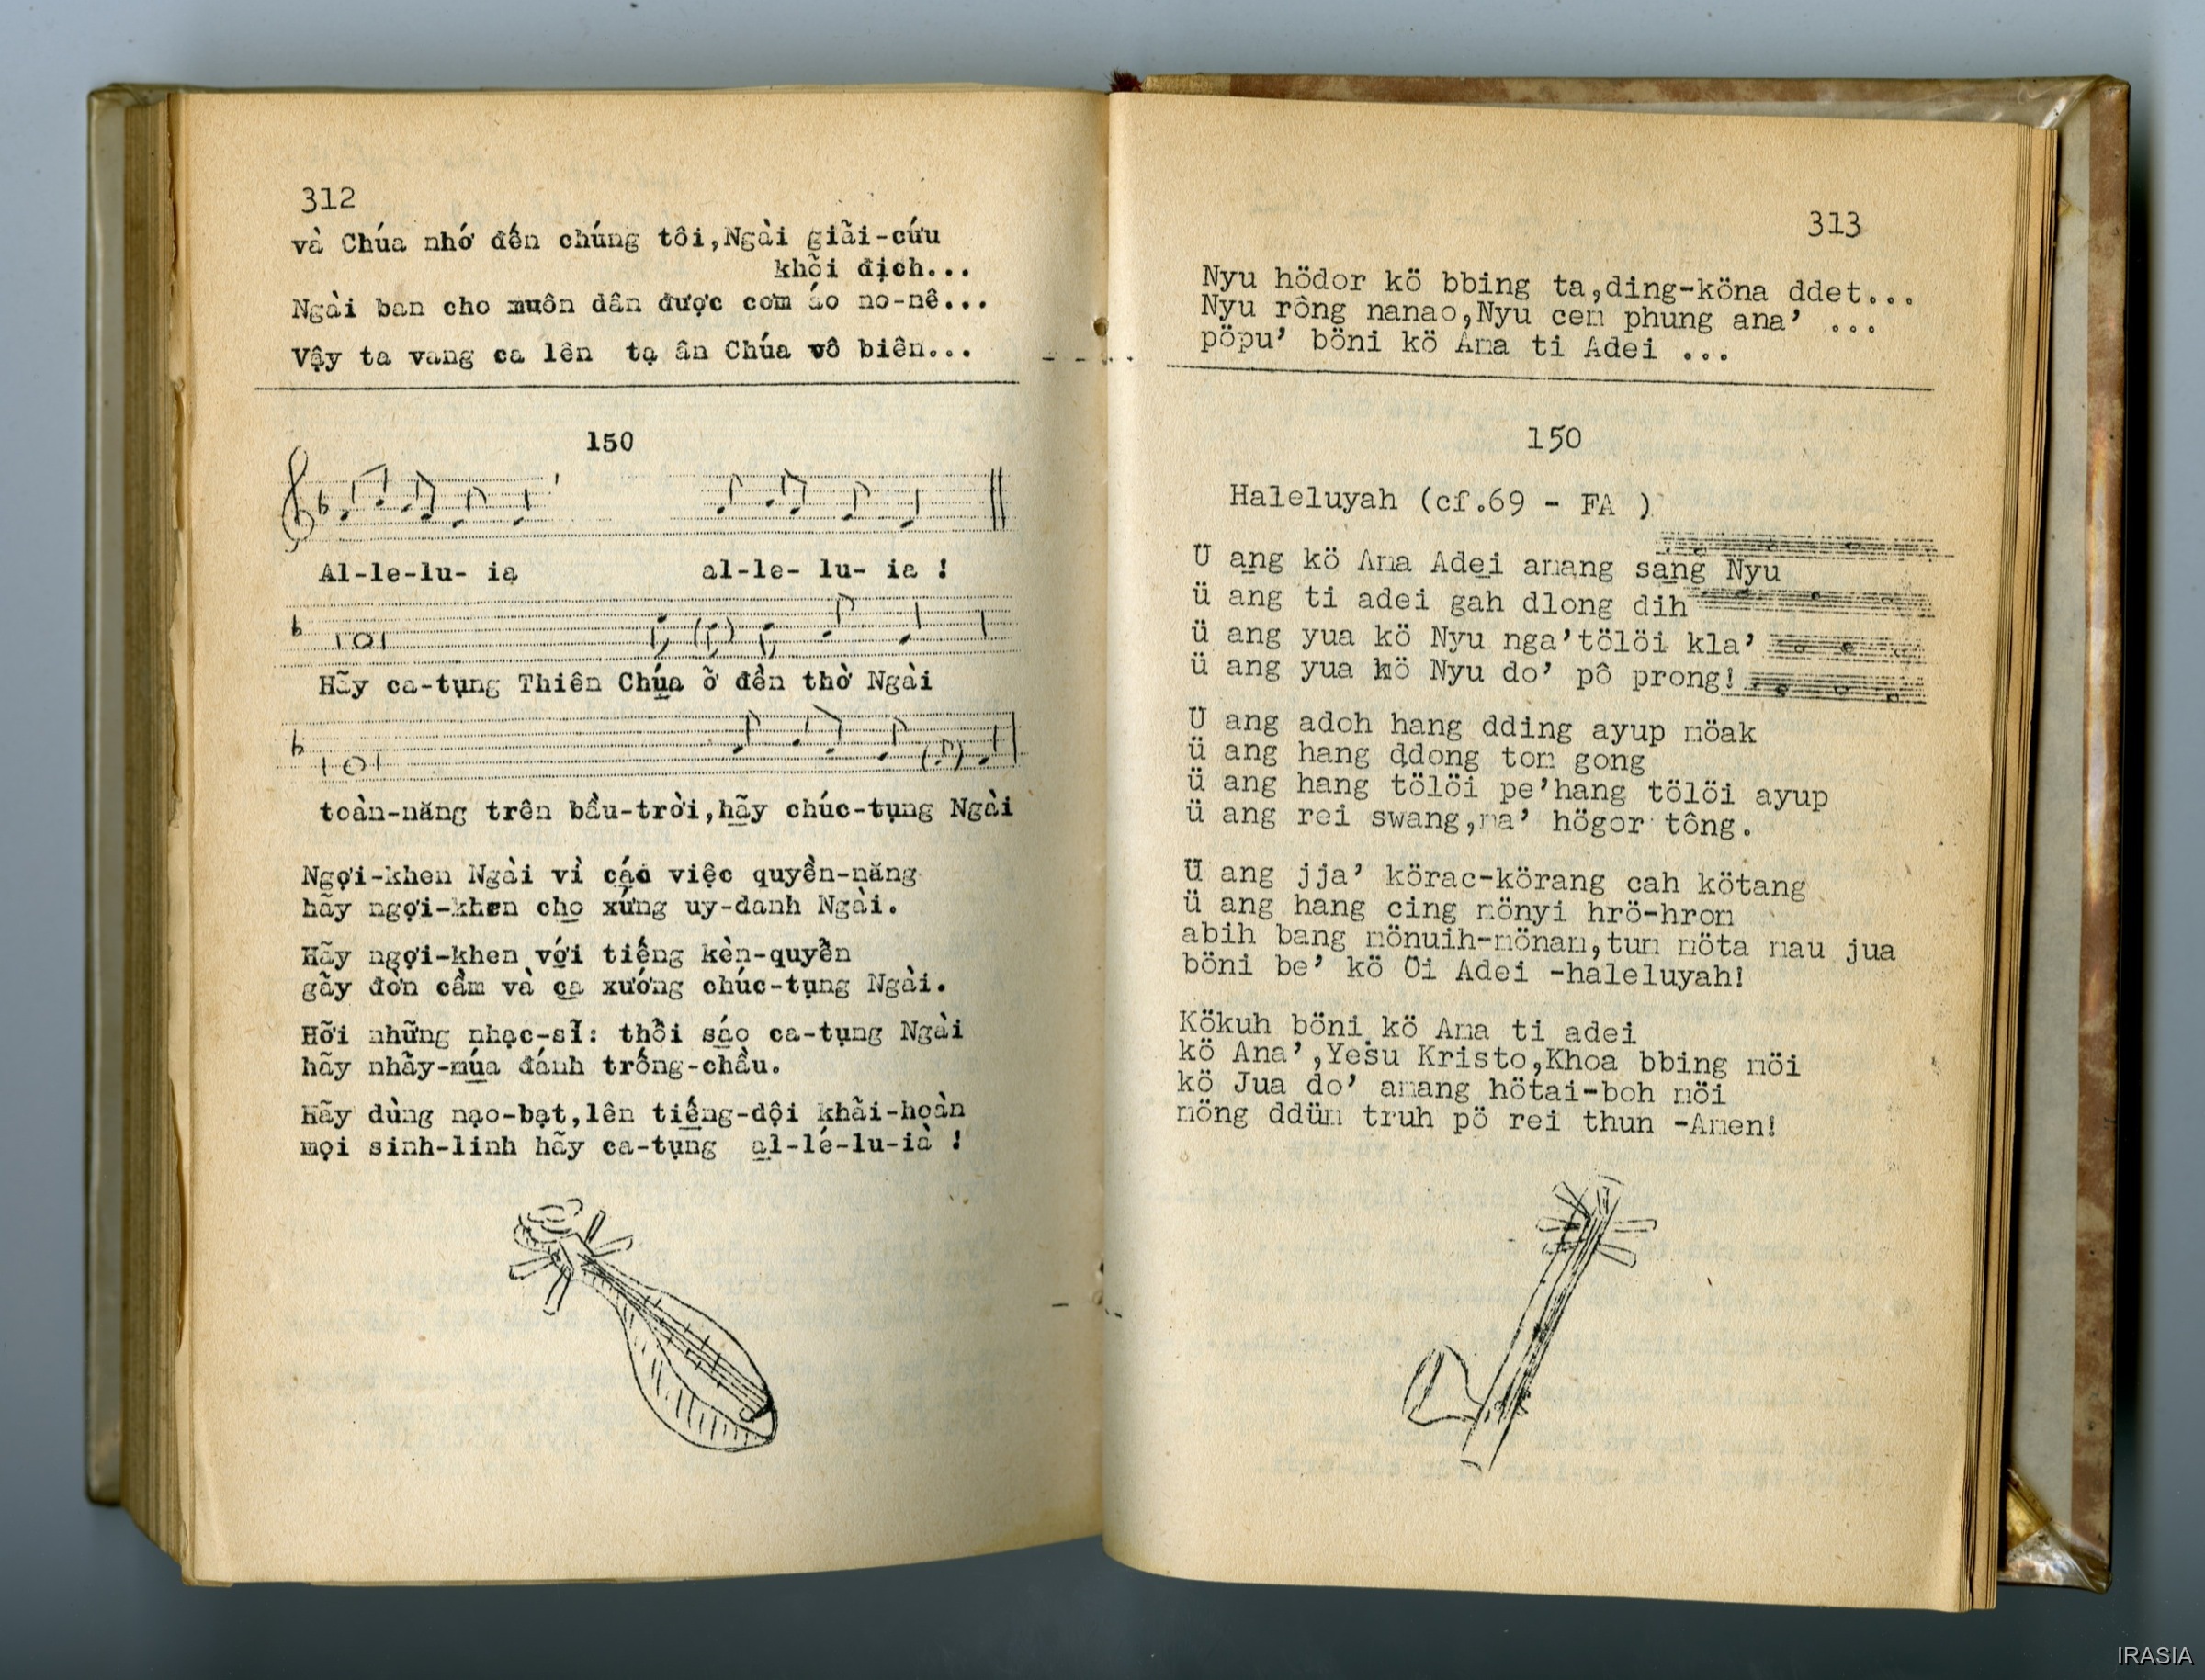 312
và Chúa nhớ đến chúng tôi,Ngài giải-cứu
khỏi địch...
Ngài ban cho muôn dân được cơm áo no-nê...
Vậy ta vang ca lên tạ ân Chúa vô biên...
150
Al-le-lu- ia al-le- lu- ia !
Hãy ca-tụng Thiên Chúa ở đền thờ Ngài
toàn-năng trên bầu-trời,hãy chúc-tụng Ngài
Ngợi-khen Ngài vì các việc quyền-năng
hãy ngợi-khen cho xứng uy-danh Ngài.
Hãy ngợi-khen với tiếng kèn-quyển
gẩy đờn cầm và ca xướng chúc-tụng Ngài.
Hỡi những nhạc-sĩ: thổi sáo ca-tụng Ngài
hãy nhảy-múa đánh trống-chầu.
Hãy dùng nạo-bạt,lên tiếng-đội khải-hoàn
mọi sinh-linh hãy ca-tụng al-lé-lu-ià !
313
Nyu hödor kö bbing ta,ding-köna ddet...
Nyu rông nanao,Nyu cem phung ana' ...
pöpu' böni kö Ama ti Adei ...
150
Haleluyah (cf.69 - FA )
Ü ang kö Ama Adei amang sang Nyu
ü ang ti adei gah dlong dih
ü ang yua kö Nyu nga'tölöi kla'
ü ang yua kö Nyu do' pô prong!
Ü ang adoh hang dding ayup möak
ü ang hang ddong tom gong
ü ang hang tölöi pe'hang tölöi ayup
ü ang rei swang,ma' högor tông.
Ü ang jja' körac-körang cah kötang
ü ang hang cing mönyi hrö-hrom
abih bang mönuih-mönam,tum möta mau jua
böni be' kö Öi Adei -haleluyah!
Kökuh böni kö Ama ti adei
kö Ana',Yesu Kristo,Khoa bbing möi
kö Jua do' amang hötai-boh möi
möng ddüm truh pö rei thun -Amen!
IRASIA